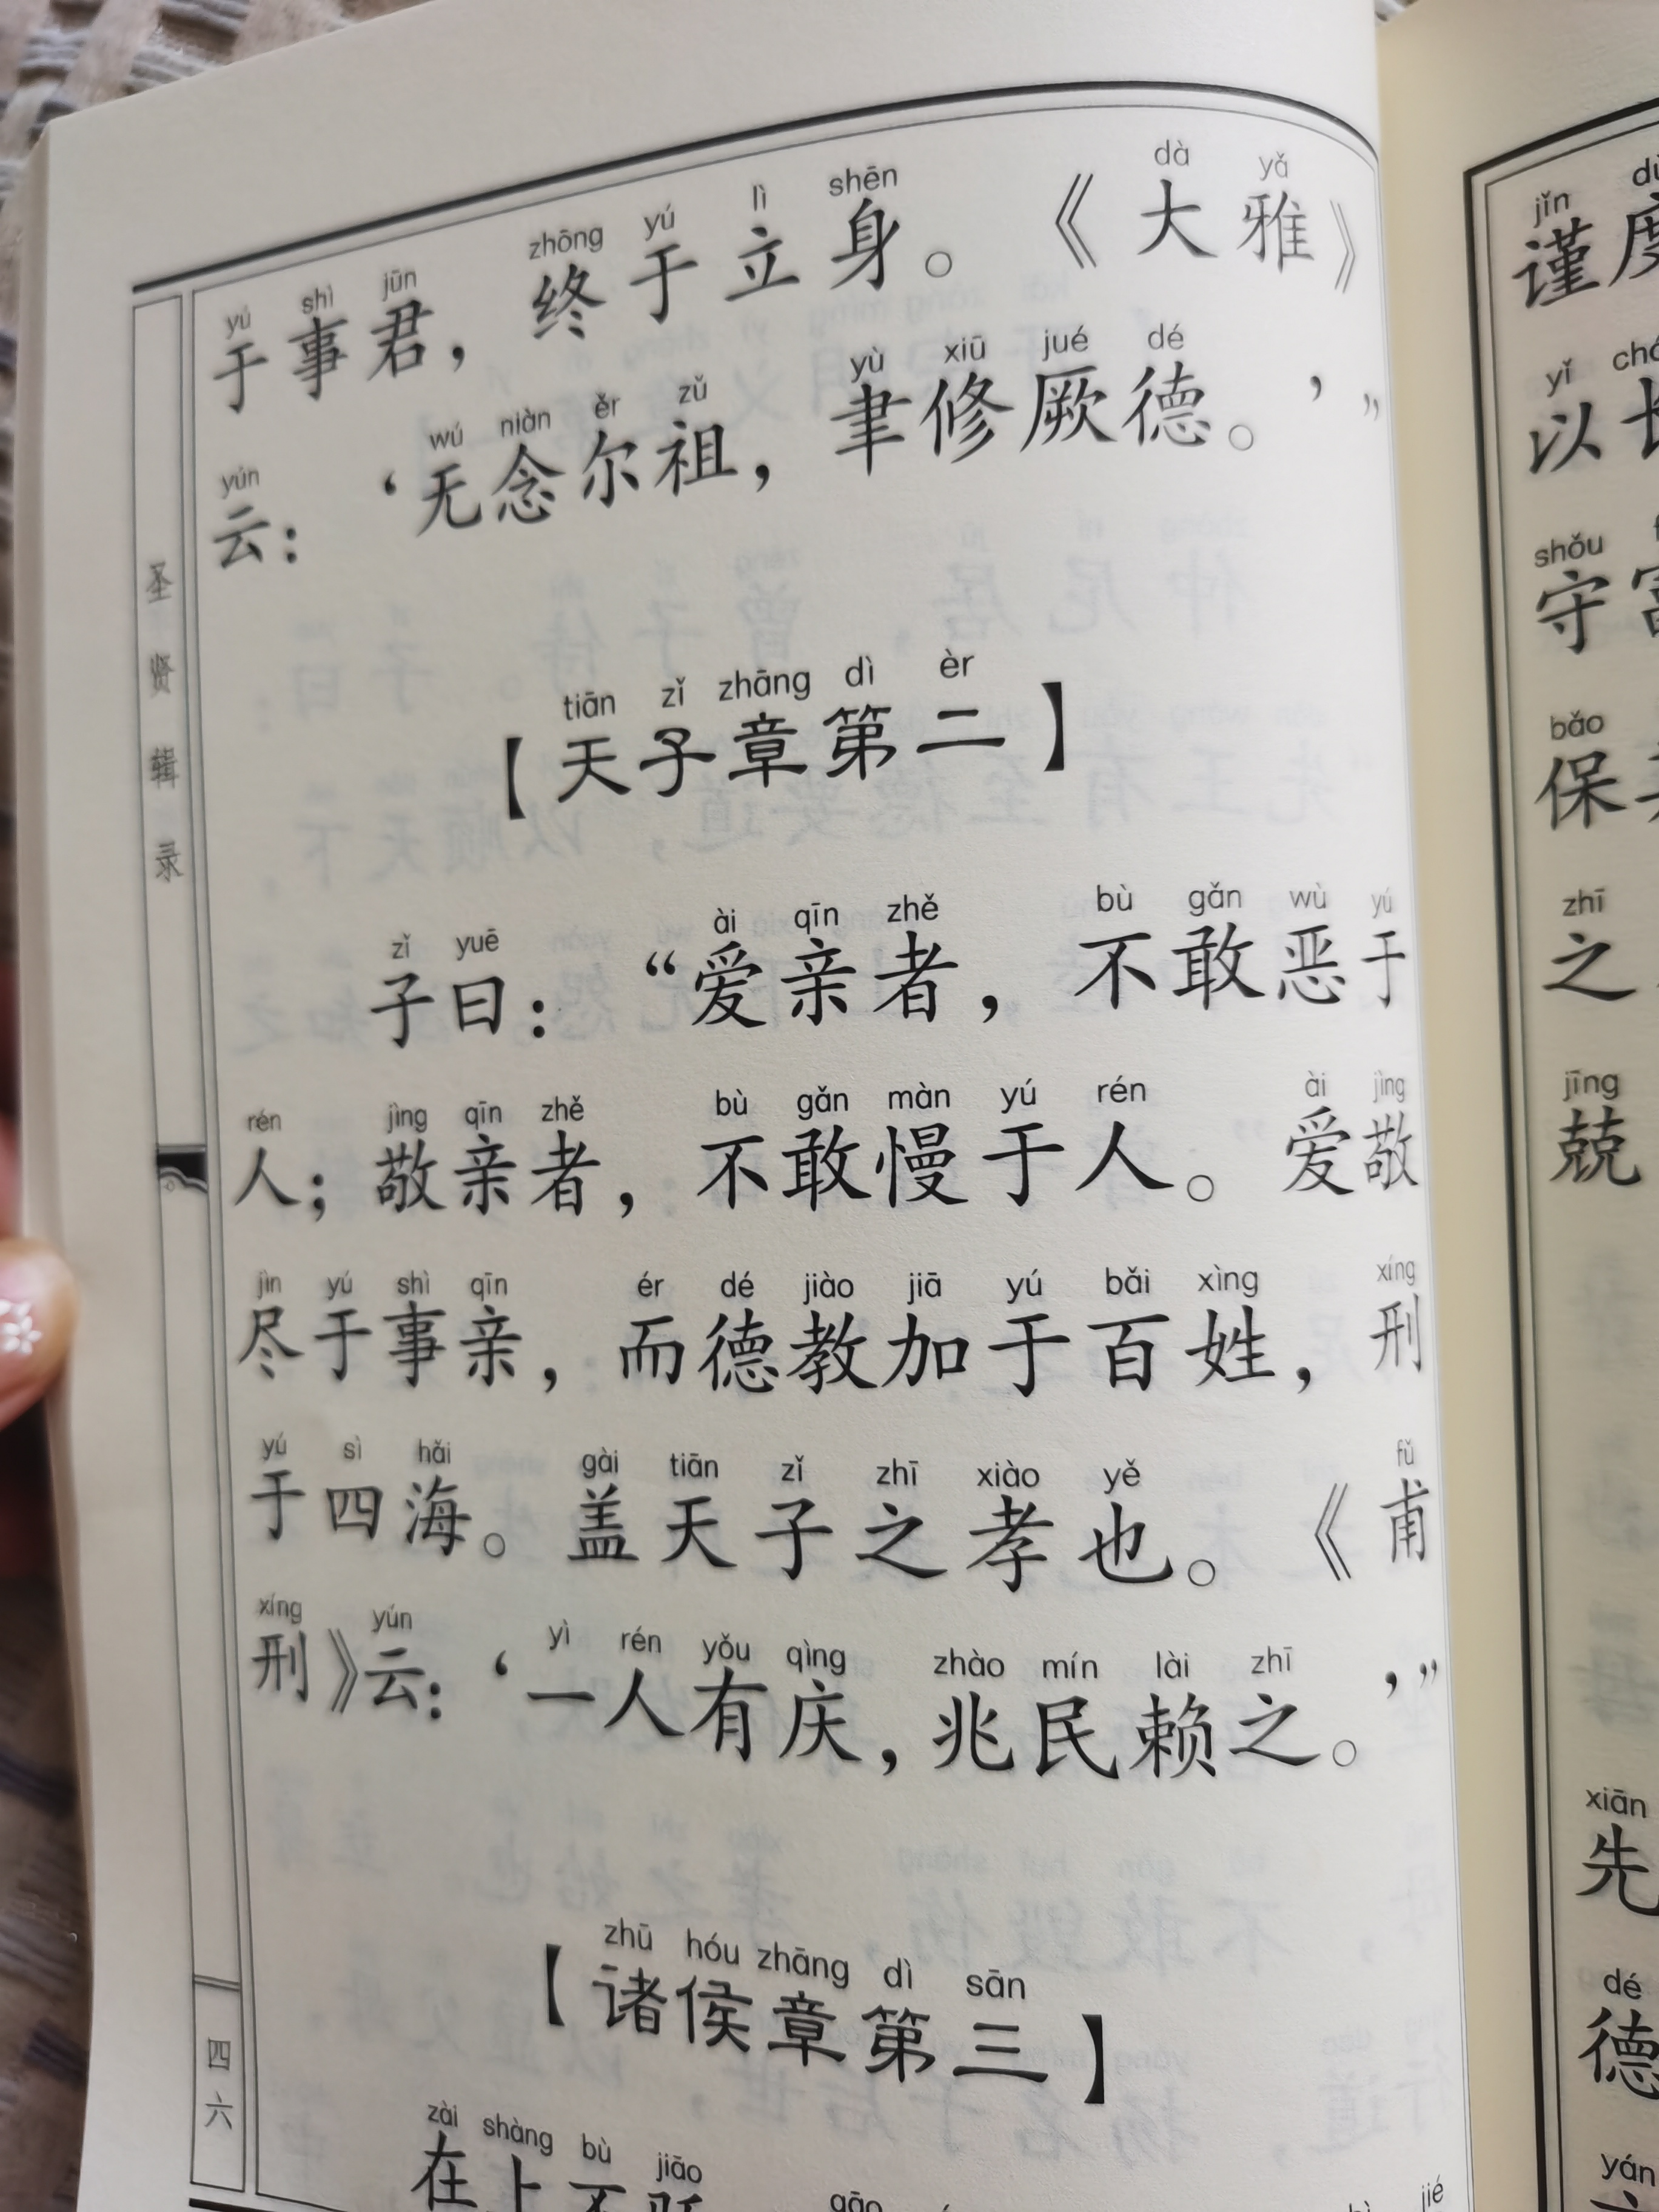 yú shì jūn zhōng yú lì shēn dà yǎ
于事君，终于立身。《大雅》
yún wú niàn ěr zǔ yù xiū jué dé
云：‘无念尔祖，聿修厥德。’”
tiān zǐ zhāng dì èr
【天子章第二】
zǐ yuē ài qīn zhě bù gǎn wù yú
子曰：“爱亲者，不敢恶于
rén jìng qīn zhě bù gǎn màn yú rén ài jìng
人；敬亲者，不敢慢于人。爱敬
jìn yú shì qīn ér dé jiào jiā yú bǎi xìng xíng
尽于事亲，而德教加于百姓，刑
yú sì hǎi gài tiān zǐ zhī xiào yě fǔ
于四海。盖天子之孝也。《甫
xíng yún yì rén yǒu qìng zhào mín lài zhī
刑》云：‘一人有庆，兆民赖之。’”
zhū hóu zhāng dì sān
【诸侯章第三】
zài shàng bù jiāo
在上不
圣贤辑录
四六
jǐn
谨度
yǐ
以长
shǒu
守富
bǎo
保
zhī
之
jīng
兢
xiān
先
dé
德